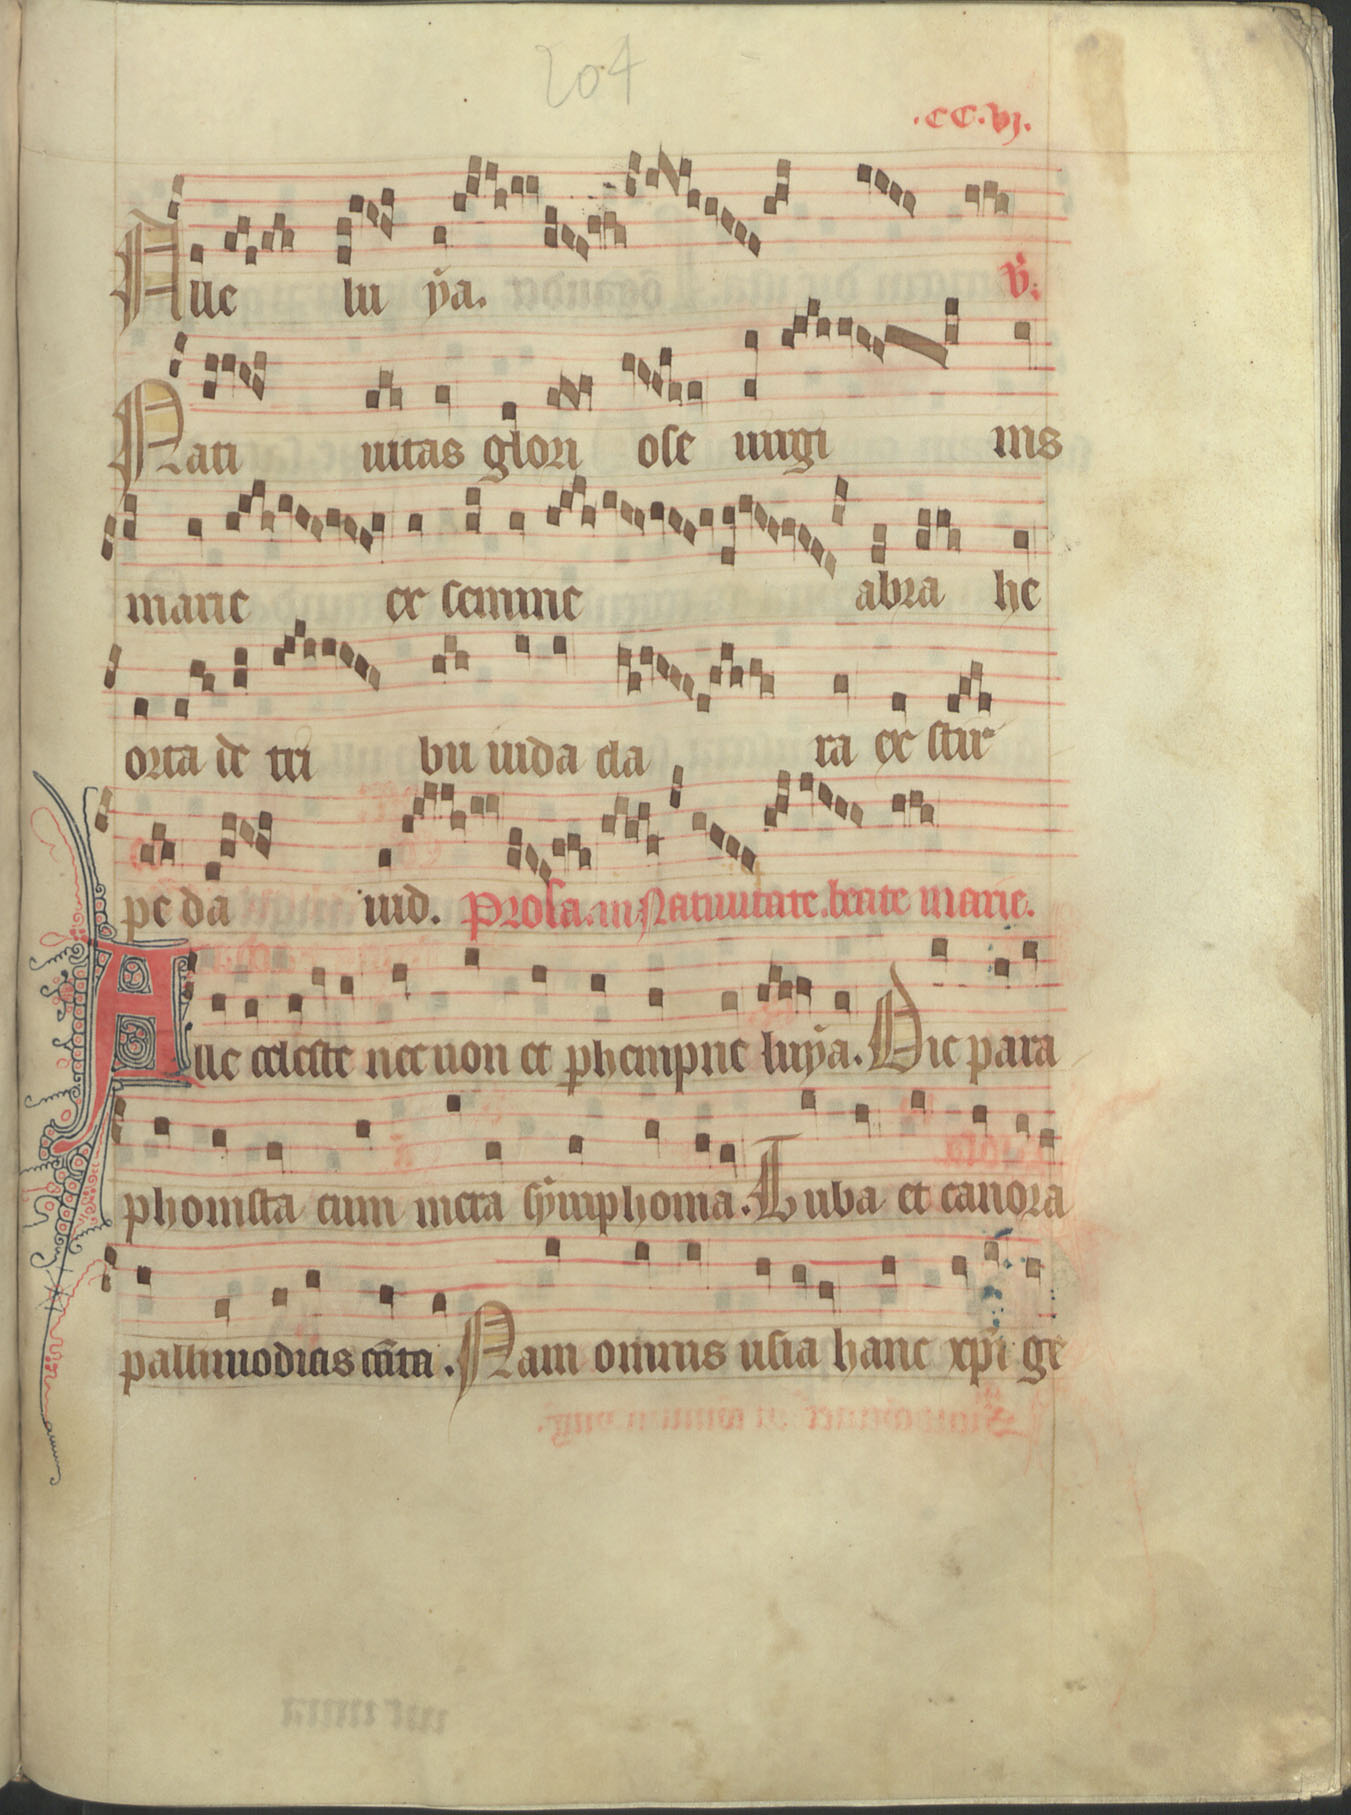 204
.CC.vj.
Alle lu ya. V.
Nati uitas glori ose uirgi nis
marie ex semine abra he
orta de tri bu iuda cla ra ex stir
pe da uid. Prosa in Natiuitate beate marie.
Alle celeste necnon et phempne luya. Dic para
phonista cum mera symphonia. Tuba et canora
palinnodias canta. Nam omnis usia hanc xpi ge